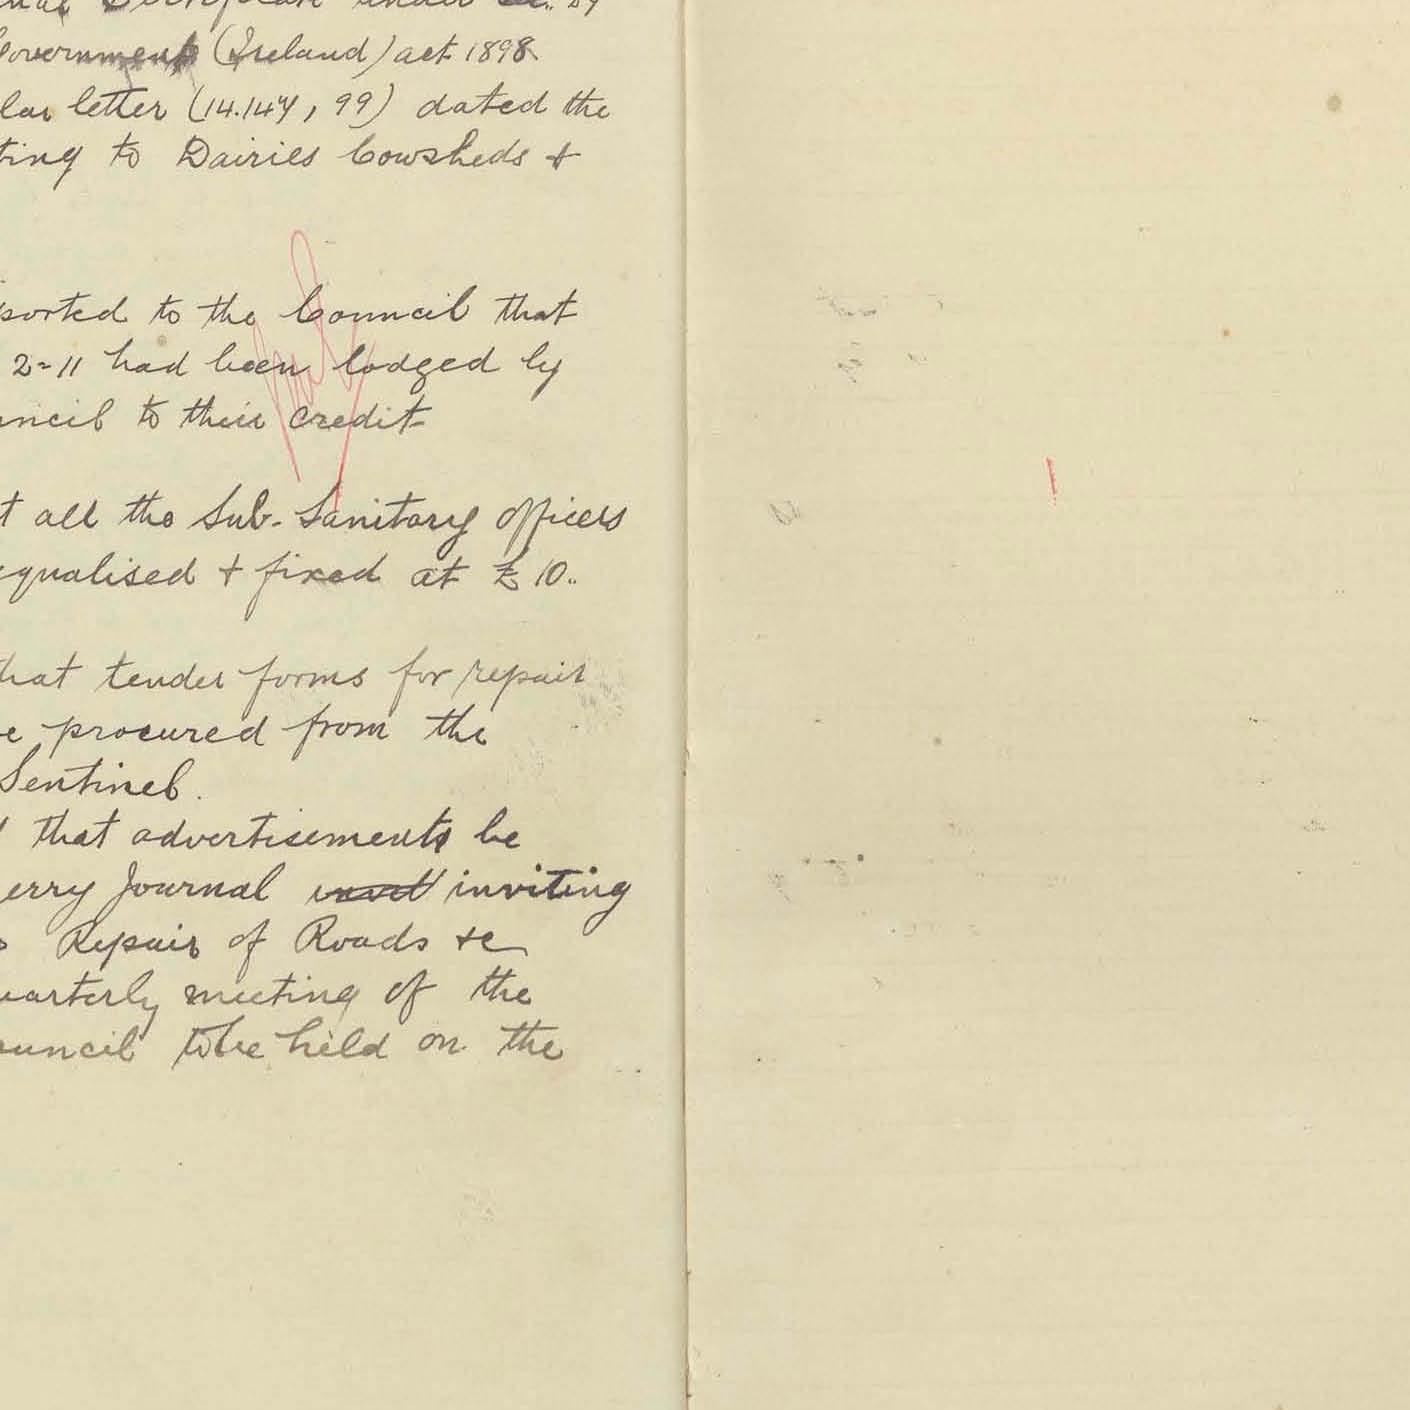 Certificate under
Government (Ireland) act 1898
lar letter (14.147, 99) dated the
ting to Dairies Cowsheds +
ported to the Council that
2=11 had been lodged by
uncil to their credit
t all the Sub-Sanitary officers
equalised + fixed at £10..
hat tender forms for repair
e procured from the
Sentinel.
that advertisements be
erry Journal inviting
Repair of Roads &c
uarterly meeting of the
ouncil to be held on the